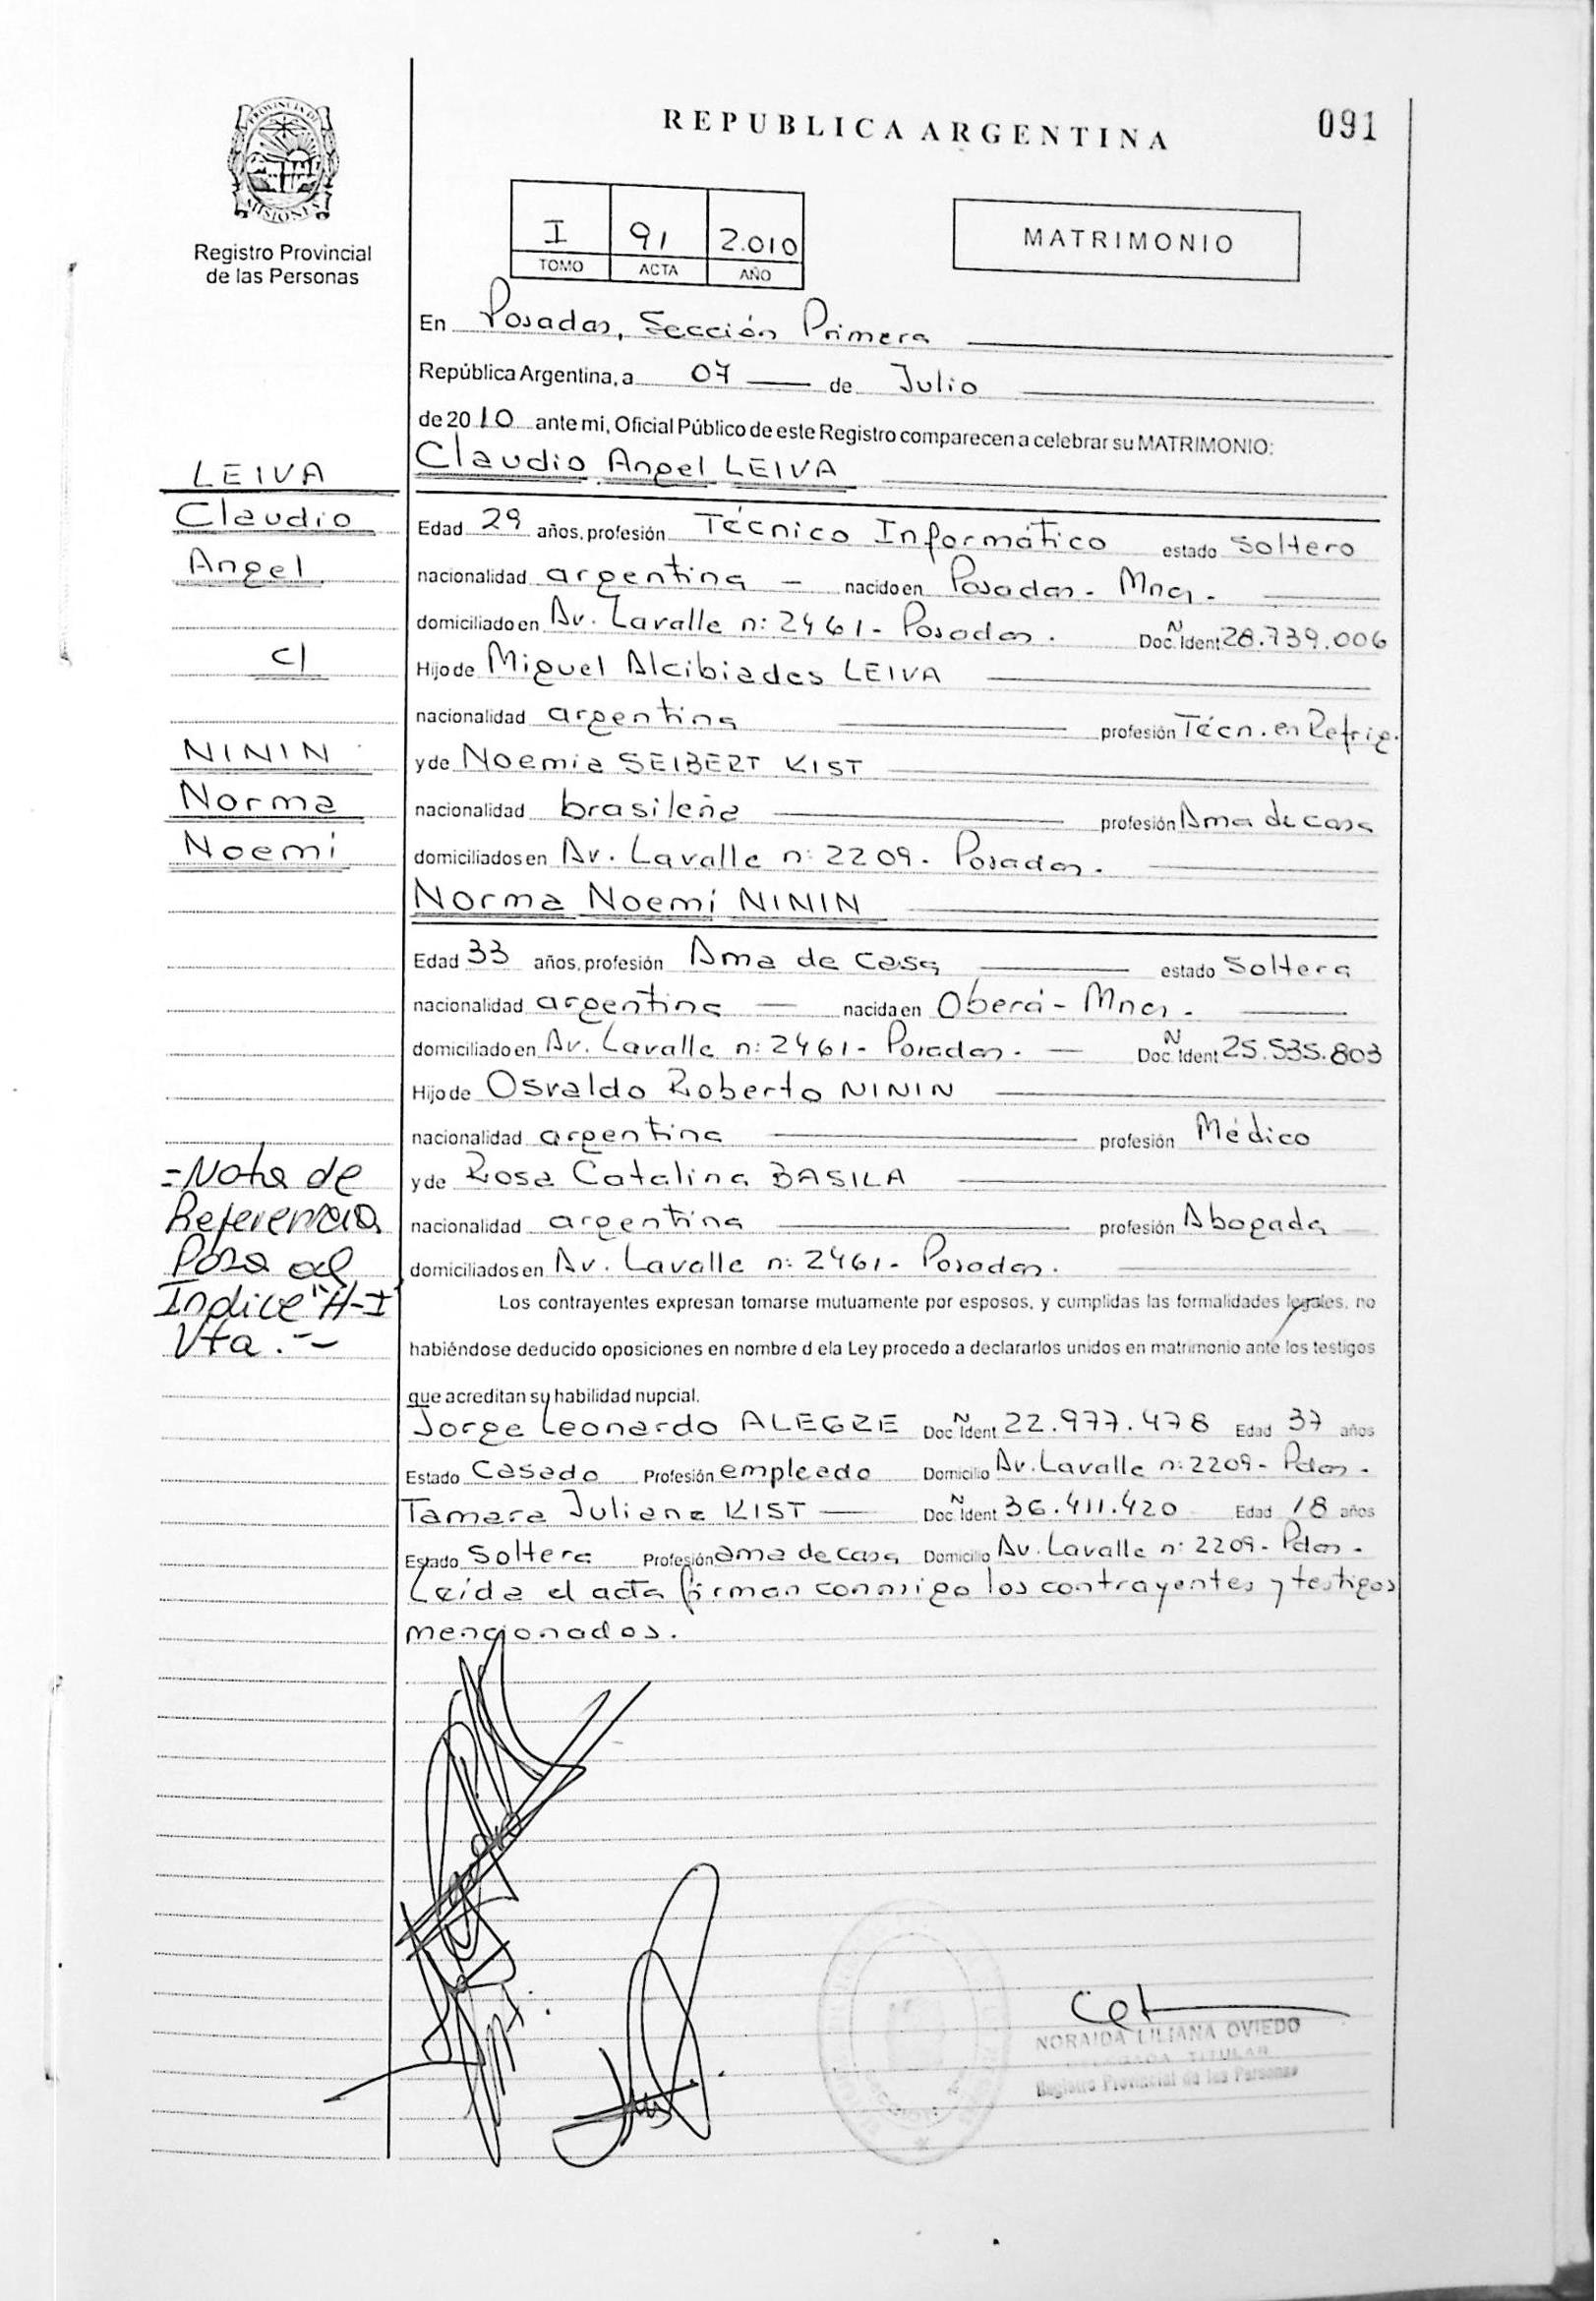 PROVINCIA DE
MISIONES
Registro Provincial
de las Personas
REPUBLICA ARGENTINA
091
I 91 2.010
TOMO ACTA AÑO
MATRIMONIO
En Posadas, Sección Primera
República Argentina, a 07 de Julio
de 2010 ante mi, Oficial Público de este Registro comparecen a celebrar su MATRIMONIO:
Claudio Angel LEIVA
LEIVA
Claudio
Angel
c/
NININ
Norma
Noemí
Edad 29 años, profesión Técnico Informático estado soltero
nacionalidad argentina - nacido en Posadas - Mnes.
domiciliado en Av. Lavalle n: 2461 - Posadas. Doc. Ident N 28.739.006
Hijo de Miguel Alcibiades LEIVA
nacionalidad argentina profesión Técn. en Refrig.
y de Noemia SEIBERT KIST
nacionalidad brasileña profesión Ama de casa
domiciliados en Av. Lavalle n: 2209 - Posadas.
Norma Noemí NININ
Edad 33 años, profesión Ama de casa estado soltera
nacionalidad argentina - nacida en Oberá - Mnes.
domiciliado en Av. Lavalle n: 2461 - Posadas. - Doc. Ident N 25.535.803
Hijo de Osvaldo Roberto NININ
nacionalidad argentina profesión Médico
y de Rosa Catalina BASILA
nacionalidad argentina profesión Abogada
domiciliados en Av. Lavalle n: 2461 - Posadas.
=Nota de
Referencia
Pasa al
Indice "H-I"
Vta.--
Los contrayentes expresan tomarse mutuamente por esposos, y cumplidas las formalidades legales, no
habiéndose deducido oposiciones en nombre d ela Ley procedo a declararlos unidos en matrimonio ante los testigos
que acreditan su habilidad nupcial.
Jorge Leonardo ALEGRE Doc. Ident N 22.977.478 Edad 37 años
Estado Casado Profesión empleado Domicilio Av. Lavalle n: 2209 - Pdas.
Tamara Juliana KIST Doc. Ident N 36.411.420 Edad 18 años
Estado soltera Profesión ama de casa Domicilio Av. Lavalle n: 2209 - Pdas.
Leída el acta firman conmigo los contrayentes y testigos
mencionados.
NORAIDA LILIANA OVIEDO
TITULAR
Registro Provincial de las Personas